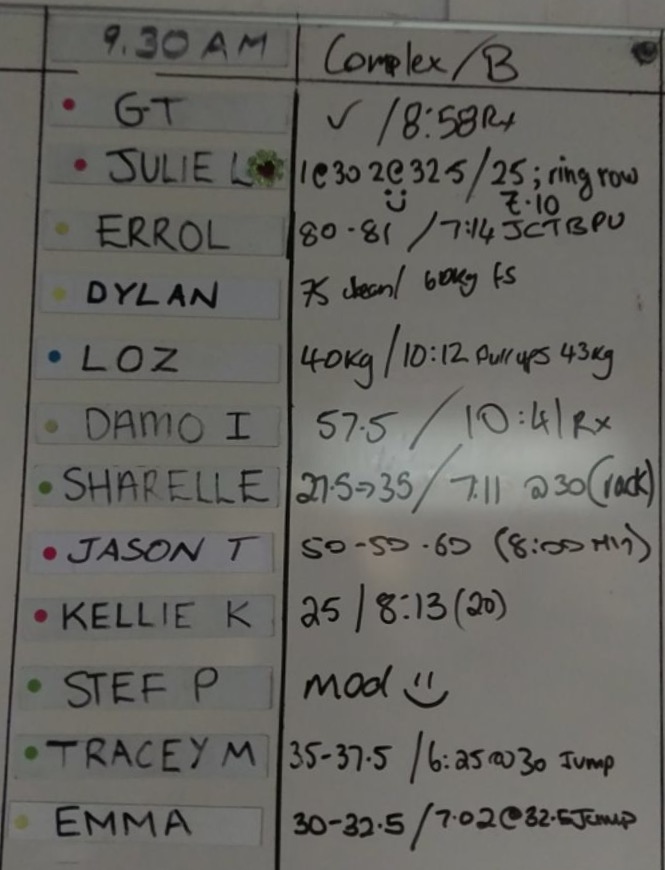 9.30 AM Complex/B
G.T ✓ /8:58 Rx
JULIE L 1@30 2@32.5/25; ring row
7.10
ERROL 80-81 /7:14 JCTBPU
DYLAN 75 clean/ 60kg FS
LOZ 40kg/10:12 Pull ups 43kg
DAMO I 57.5 / 10:41 Rx
SHARELLE 27.5→35/ 7.11 @30(rack)
JASON T 50-50-60 (8:00 Min)
KELLIE K 25 / 8:13 (20)
STEF P mod
TRACEY M 35-37.5 /6:25@30 Jump
EMMA 30-32.5 /7.02@32.5Jump